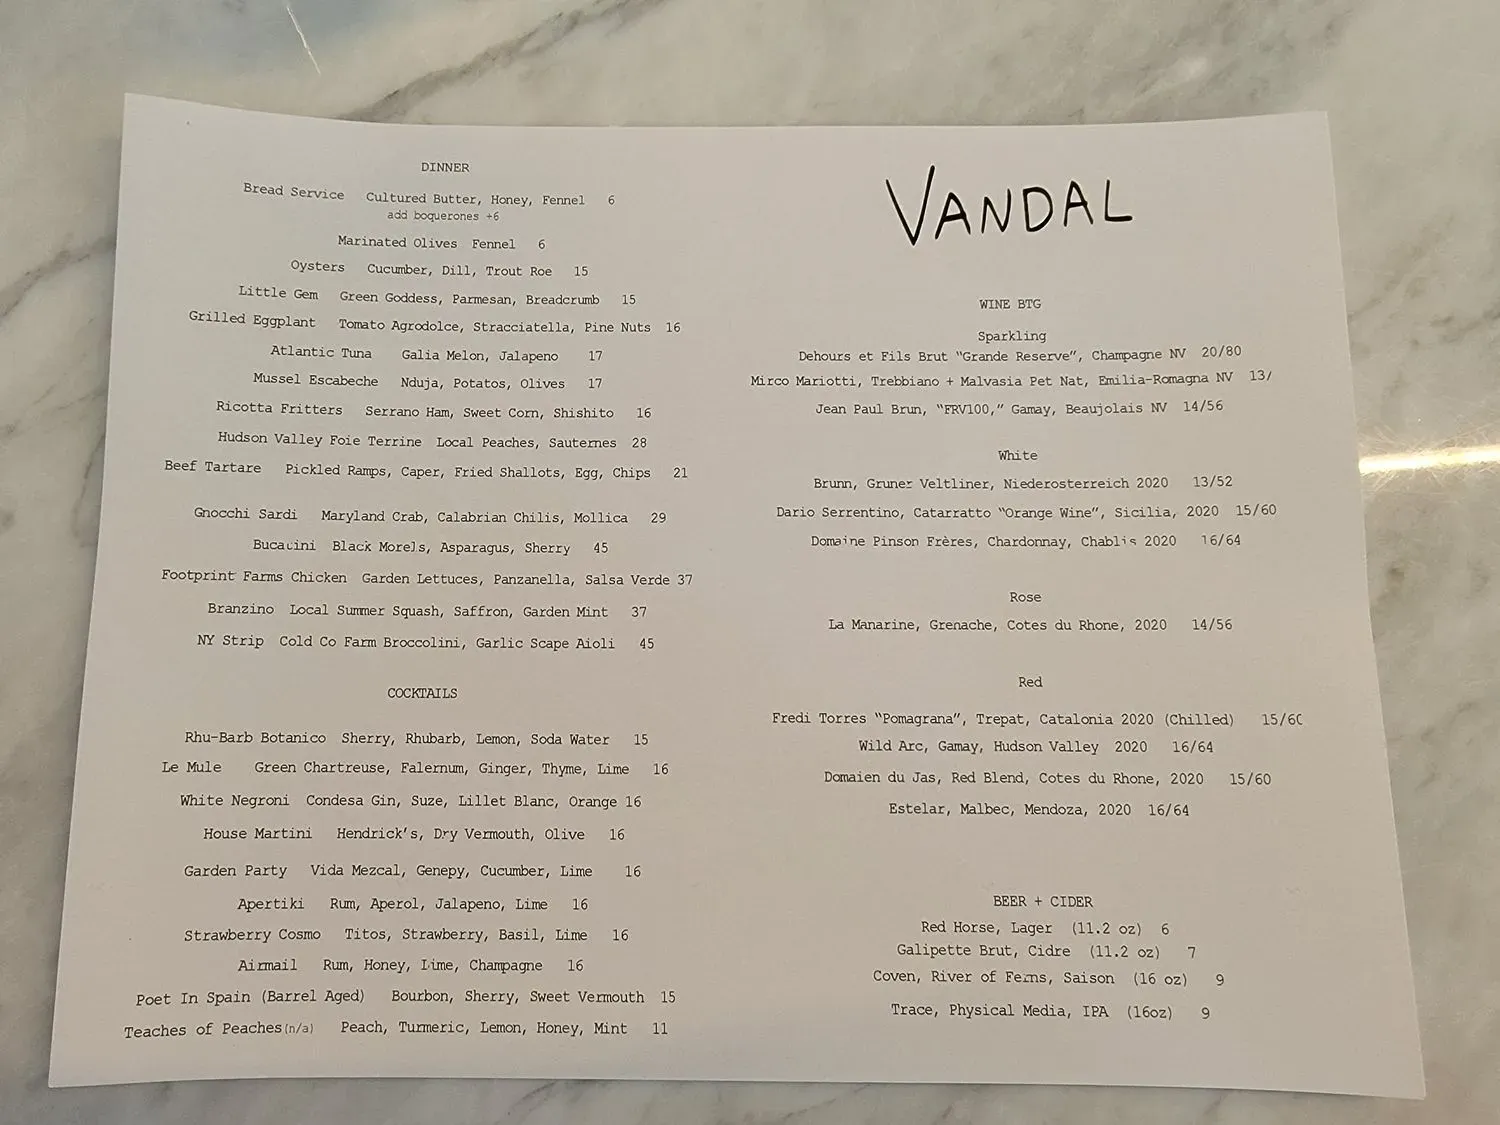 DINNER
Bread Service Cultured Butter, Honey, Fennel 6
add boquerones +6
Marinated Olives Fennel 6
Oysters Cucumber, Dill, Trout Roe 15
Little Gem Green Goddess, Parmesan, Breadcrumb 15
Grilled Eggplant Tomato Agrodolce, Stracciatella, Pine Nuts 16
Atlantic Tuna Galia Melon, Jalapeno 17
Mussel Escabeche Nduja, Potatos, Olives 17
Ricotta Fritters Serrano Ham, Sweet Corn, Shishito 16
Hudson Valley Foie Terrine Local Peaches, Sauternes 28
Beef Tartare Pickled Ramps, Caper, Fried Shallots, Egg, Chips 21
Gnocchi Sardi Maryland Crab, Calabrian Chilis, Mollica 29
Bucatini Black Morels, Asparagus, Sherry 45
Footprint Farms Chicken Garden Lettuces, Panzanella, Salsa Verde 37
Branzino Local Summer Squash, Saffron, Garden Mint 37
NY Strip Cold Co Farm Broccolini, Garlic Scape Aioli 45
COCKTAILS
Rhu-Barb Botanico Sherry, Rhubarb, Lemon, Soda Water 15
Le Mule Green Chartreuse, Falernum, Ginger, Thyme, Lime 16
White Negroni Condesa Gin, Suze, Lillet Blanc, Orange 16
House Martini Hendrick's, Dry Vermouth, Olive 16
Garden Party Vida Mezcal, Genepy, Cucumber, Lime 16
Apertiki Rum, Aperol, Jalapeno, Lime 16
Strawberry Cosmo Titos, Strawberry, Basil, Lime 16
Airmail Rum, Honey, Lime, Champagne 16
Poet In Spain (Barrel Aged) Bourbon, Sherry, Sweet Vermouth 15
Teaches of Peaches(n/a) Peach, Turmeric, Lemon, Honey, Mint 11
VANDAL
WINE BTG
Sparkling
Dehours et Fils Brut "Grande Reserve", Champagne NV 20/80
Mirco Mariotti, Trebbiano + Malvasia Pet Nat, Emilia-Romagna NV 13/
Jean Paul Brun, "FRV100," Gamay, Beaujolais NV 14/56
White
Brunn, Gruner Veltliner, Niederosterreich 2020 13/52
Dario Serrentino, Catarratto "Orange Wine", Sicilia, 2020 15/60
Domaine Pinson Frères, Chardonnay, Chablis 2020 16/64
Rose
La Manarine, Grenache, Cotes du Rhone, 2020 14/56
Red
Fredi Torres "Pomagrana", Trepat, Catalonia 2020 (Chilled) 15/60
Wild Arc, Gamay, Hudson Valley 2020 16/64
Domaien du Jas, Red Blend, Cotes du Rhone, 2020 15/60
Estelar, Malbec, Mendoza, 2020 16/64
BEER + CIDER
Red Horse, Lager (11.2 oz) 6
Galipette Brut, Cidre (11.2 oz) 7
Coven, River of Ferns, Saison (16 oz) 9
Trace, Physical Media, IPA (16oz) 9